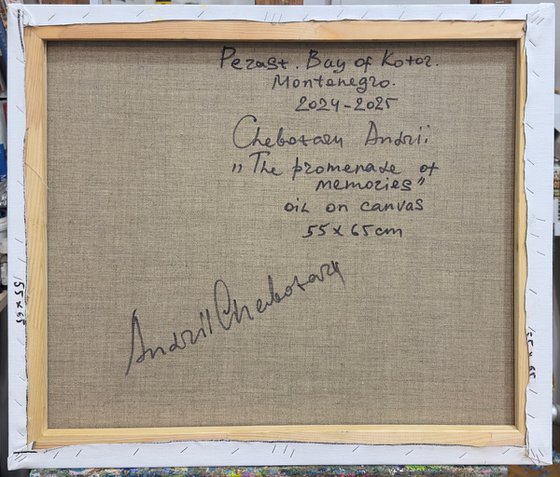 Perast. Bay of Kotor.
Montenegro.
2024-2025
Chebotaru Andrii
„The promenade of
memories"
oil on canvas
55 x 65 cm
Andrii Chebotaru
55 x 65
55 x 65